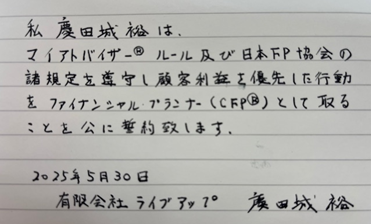 私 慶田城裕は、
マイアドバイザー® ルール及び日本FP協会の
諸規定を遵守し顧客利益を優先した行動
を ファイナンシャル・プランナー(CFP®)として取る
ことを公に誓約致します.
2025年5月30日
有限会社 ライブアップ 慶田城 裕